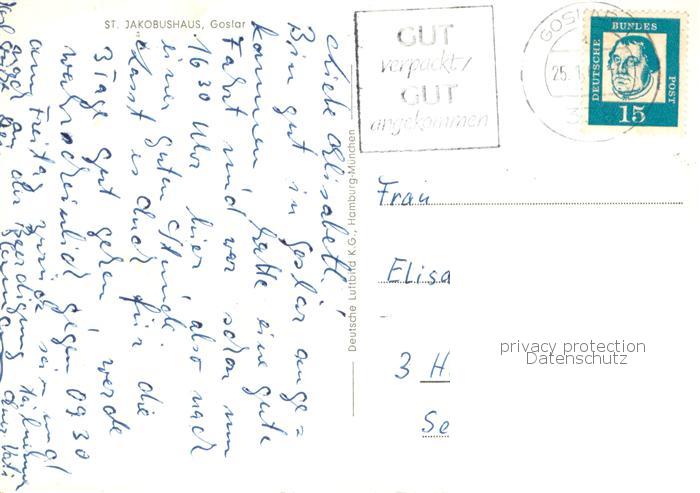 ST. JAKOBUSHAUS, Goslar
Liebe Elisabeth!
Bin gut in Goslar ange=
kommen, hatte eine gute
Fahrt und war schon um
16 30 Uhr hier also nach
einer guten Stunde.
Lasst es Euch für die
3 Tage gut gehen, werde
wahrscheinlich gegen 09 30
am Freitag zurück sein und
an der Beerdigung teilnehmen
Euer Vati
Deutsche Luftbild K.G., Hamburg-München
GUT
verpackt/
GUT
angekommen
GOSLAR
25.1
3
DEUTSCHE
BUNDES
POST
15
Frau
Elisa
3 H
Se
privacy protection
Datenschutz